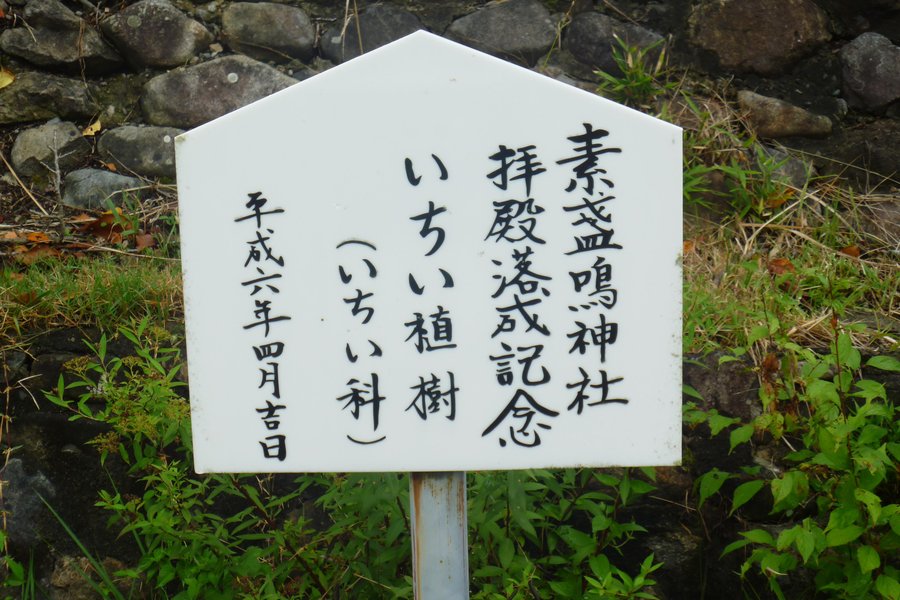 素盞鳴神社
拝殿落成記念
いちい植樹
(いちい科)
平成六年四月吉日